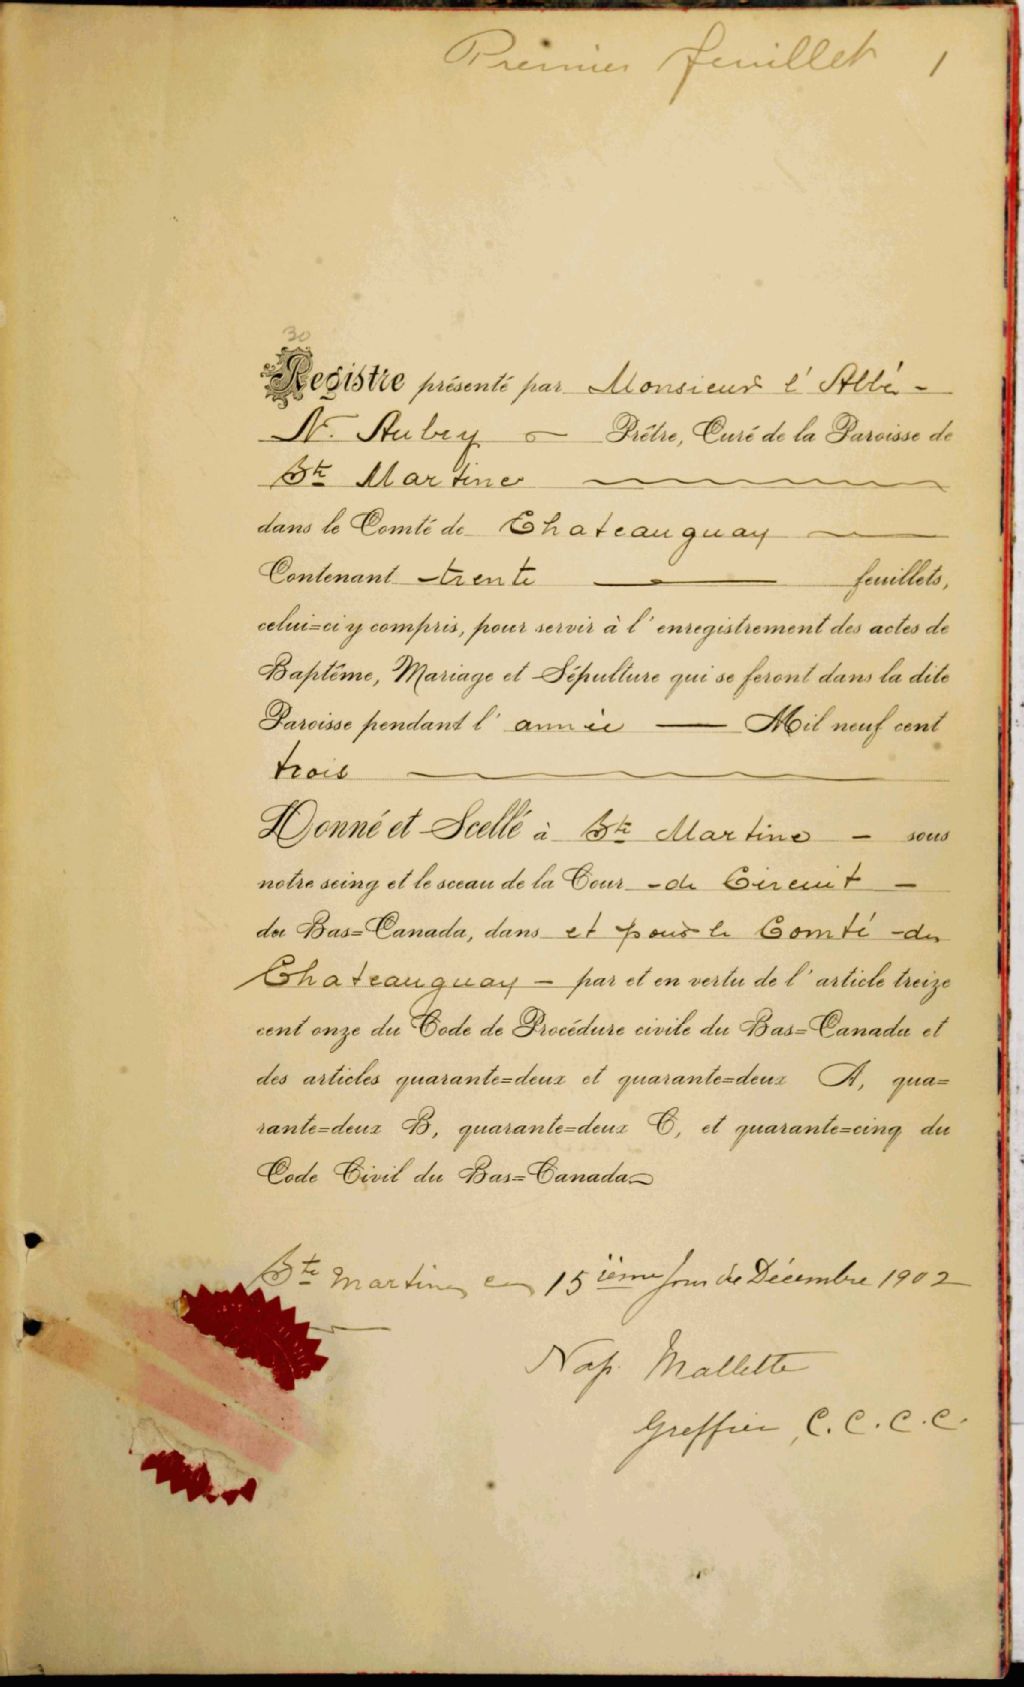 Premier feuillet 1
30
Registre présenté par Monsieur l'Abbé -
N. Aubry Prêtre, Curé de la Paroisse de
Ste Martine
dans le Comté de Chateauguay
Contenant trente feuillets,
celui=ci y compris, pour servir à l'enregistrement des actes de
Baptême, Mariage et Sépulture qui se feront dans la dite
Paroisse pendant l'année — Mil neuf cent
trois
Donné et Scellé à Ste Martine - sous
notre seing et le sceau de la Cour - de Circuit -
du Bas=Canada, dans et pour le Comté de
Chateauguay - par et en vertu de l'article treize
cent onze du Code de Procédure civile du Bas=Canada et
des articles quarante=deux et quarante=deux A, qua=
rante=deux B, quarante=deux C, et quarante=cinq du
Code Civil du Bas=Canada
Ste Martine ce 15ième jour de Décembre 1902
Nap. Mallette
Greffier, C. C. C. C.